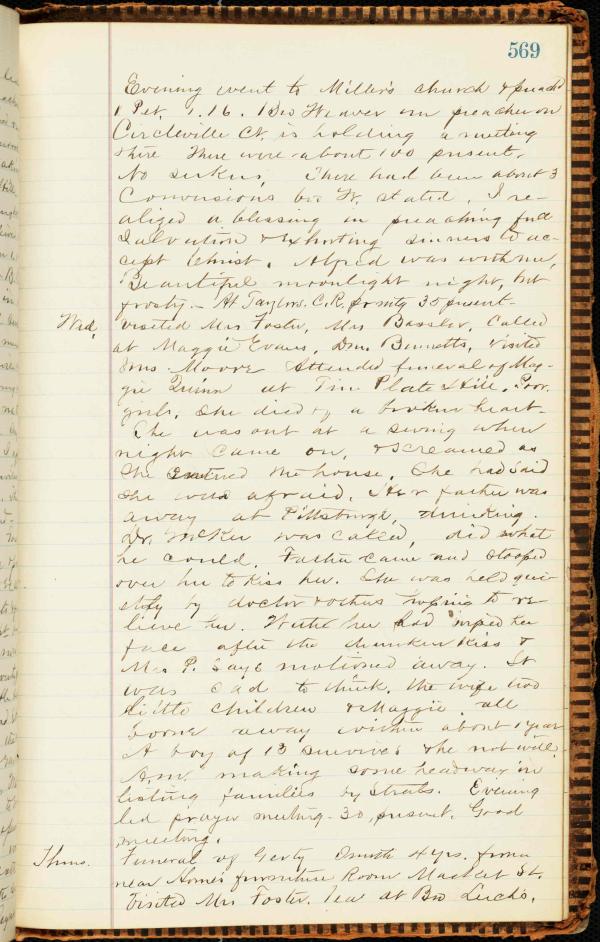 569
Evening went to Miller's church & preachd
1 Pet. 1.16. Bro Weaver our preacher on
Circleville Ct. is holding a meeting
there There were about 100 present.
No seekers, There had been about 3
Conversions bro W. stated. I re-
alized a blessing in preaching full
Salvation & exhorting sinners to ac-
cept Christ. Alfred was with me,
Beautiful moonlight night, but
frosty.- At Taylors. C.R. 35 present
Wed, Visited Mrs Foster, Mrs Bassler, Called
at Maggie Evans, Bennetts, Visited
Mrs Moore Attended funeral of Mag-
gie Quinn at Tin Plate Hill. Poor
girl, she died of a broken heart-
She was out at a swing when
night came on, & screamed as
she entered the house. She had said
she was afraid. Her father was
away at Pittsburgh, drinking.
Dr. was called, did what
he could. Father came and stooped
over her to kiss her. She was held qui-
etly by doctor & others hoping to re-
lieve her. her had wiped her
face after the drunken kiss &
Mrs P. says motioned away. It
was sad to think, the wife two
little children & Maggie all
gone away within about 1 year
A boy of 13 survives & he not well.
A.m. making some headway in
listing families by strats. Evening
led prayer meeting- 30 present. Good
meeting.
Thurs. Funeral of Gerty Smith 4 yrs. from
near furniture Room Market St.
Visited Mrs Foster. Tea at Bro